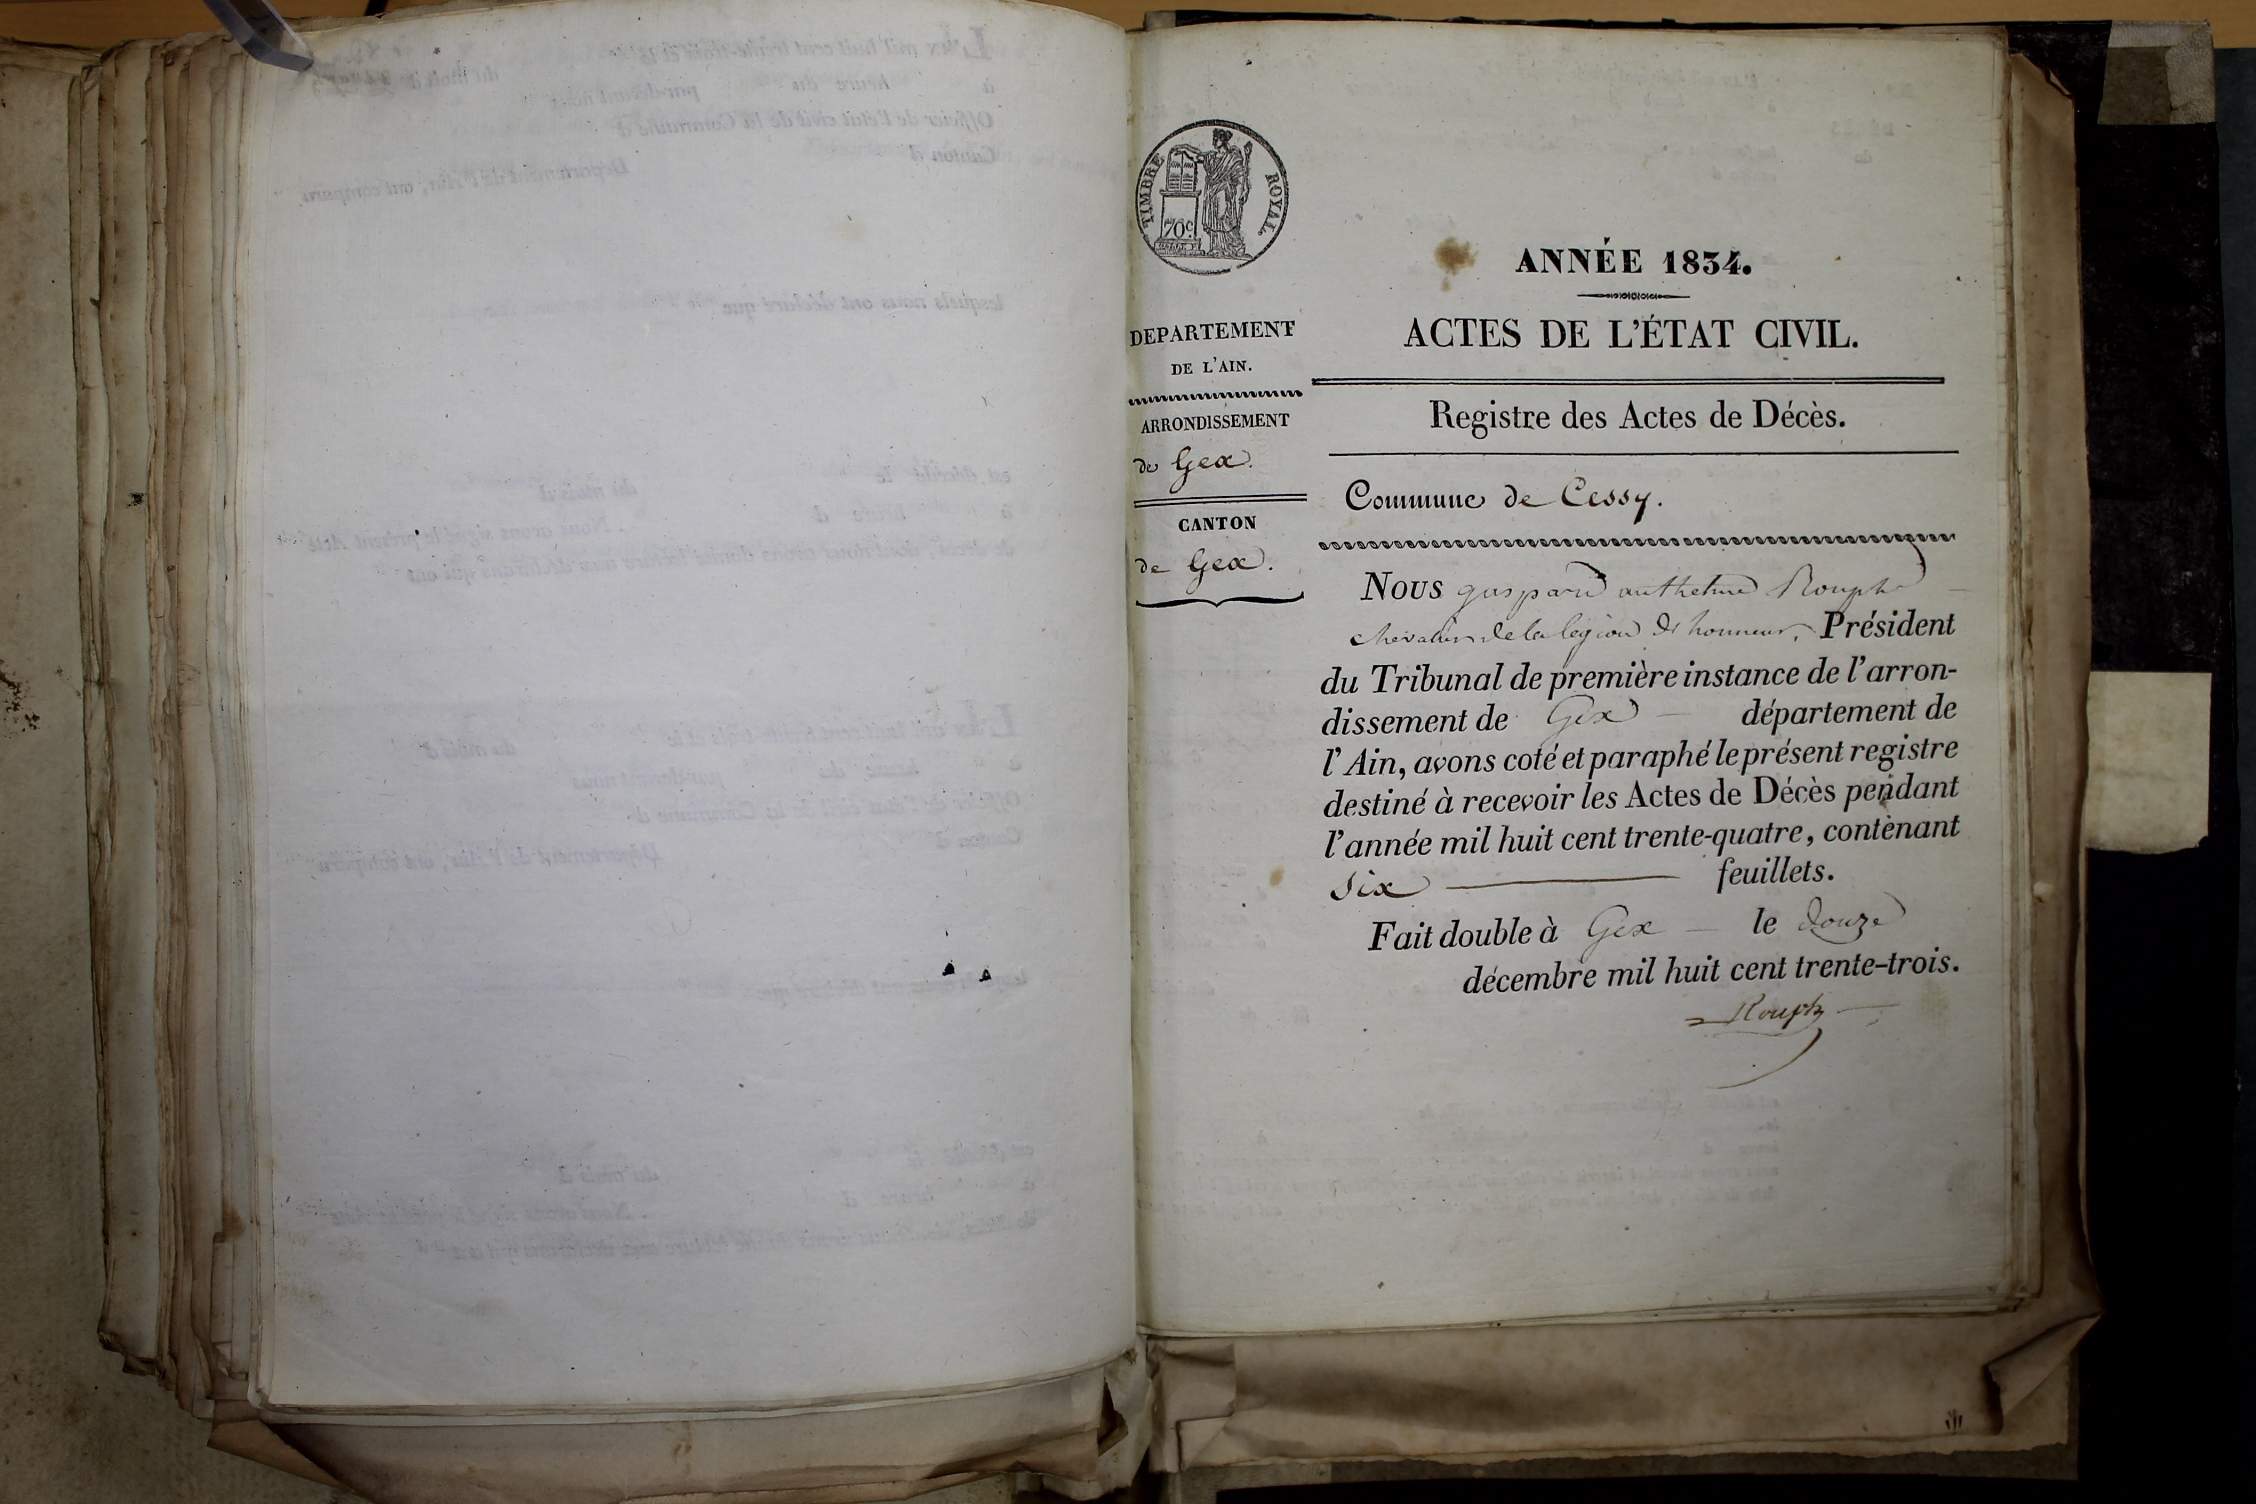 TIMBRE ROYAL
70c.
ANNÉE 1834.
ACTES DE L'ÉTAT CIVIL.
DEPARTEMENT
DE L'AIN.
ARRONDISSEMENT
de Gex.
CANTON
de Gex.
Registre des Actes de Décès.
Commune de Cessy.
NOUS gaspard anthelme Rouph
chevalier de la légion d'honneur, Président
du Tribunal de première instance de l'arron-
dissement de Gex département de
l'Ain, avons coté et paraphé le présent registre
destiné à recevoir les Actes de Décès pendant
l'année mil huit cent trente-quatre, contenant
Six feuillets.
Fait double à Gex le douze
décembre mil huit cent trente-trois.
Rouph